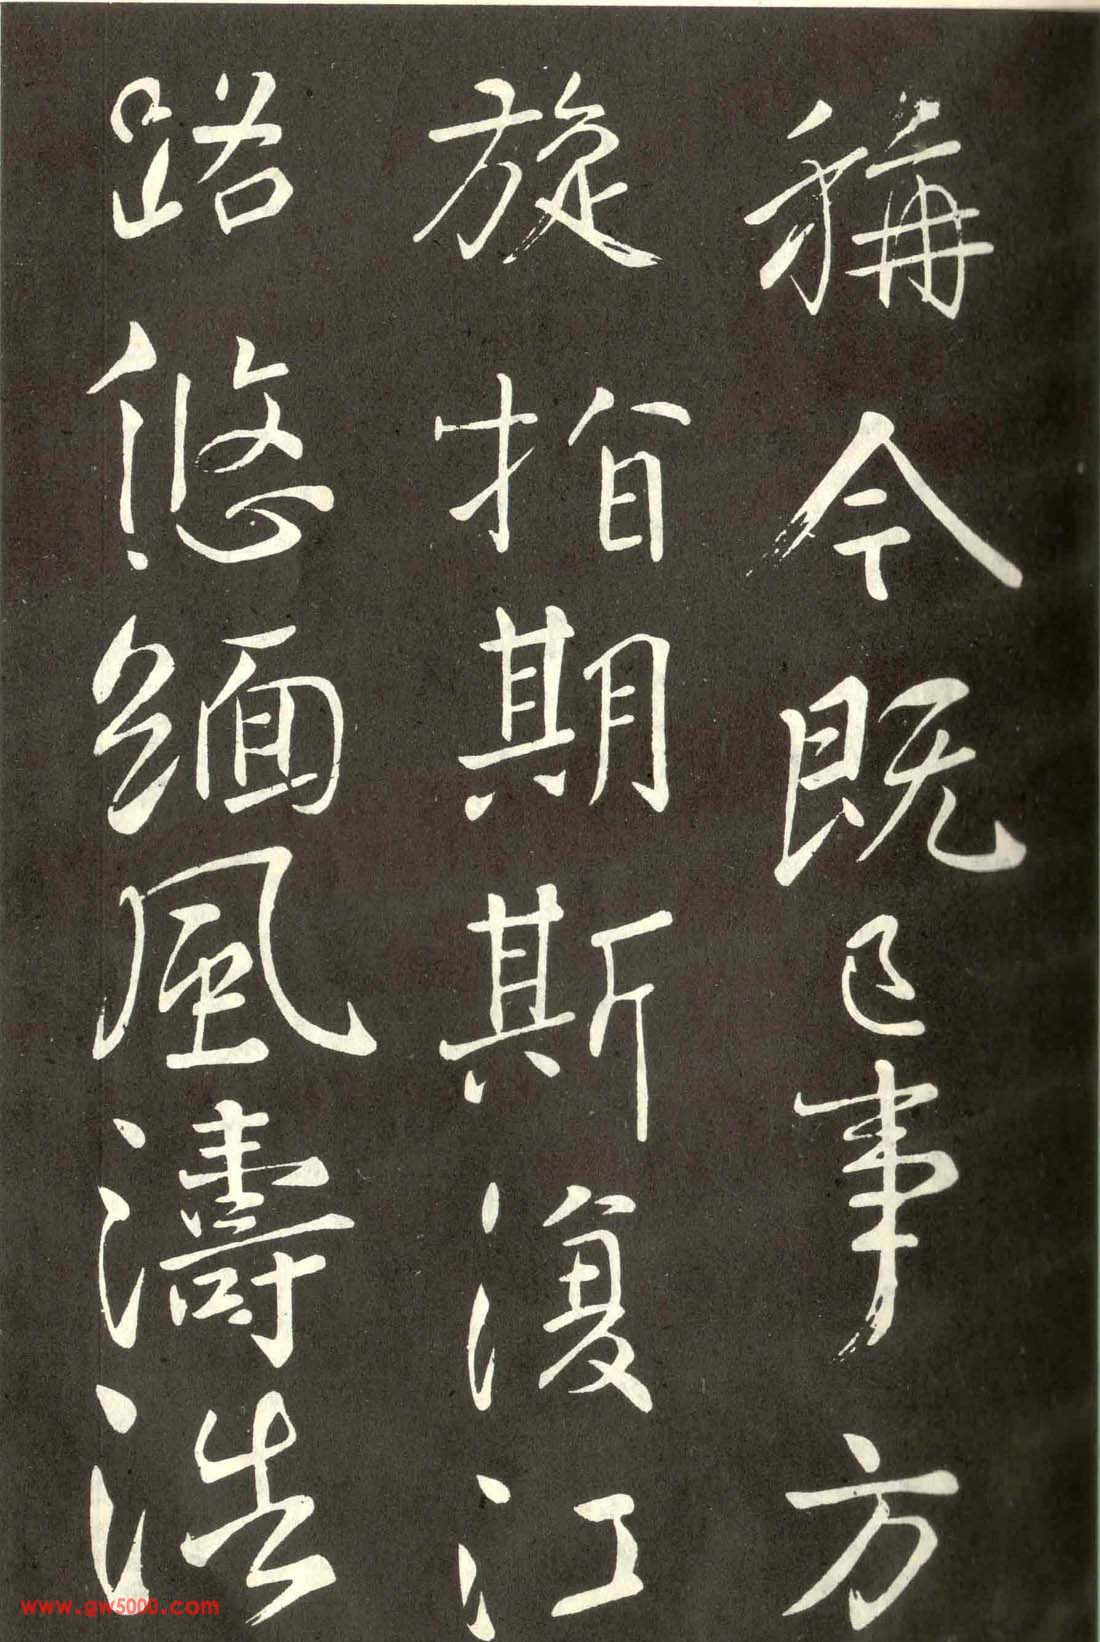 稱今既已事方
旋指期斯復江
路悠緬風濤浩
www.gw5000.com